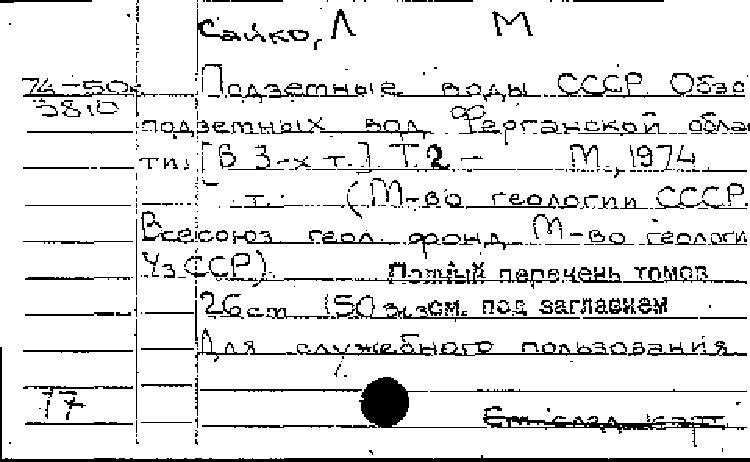 Сайко, Л М
74-50к Подземные воды СССР Обзо
3810
подземных вод Ферганской облас
ти. [В 3-х т.] Т.2 - М., 1974
т. (М-во геологии СССР.
Всесоюз геол. фонд М-во геологи
УзССР).
Полный перечень томов
26 см 150 экз. под заглавием
Для служебного пользования
77
См след карт